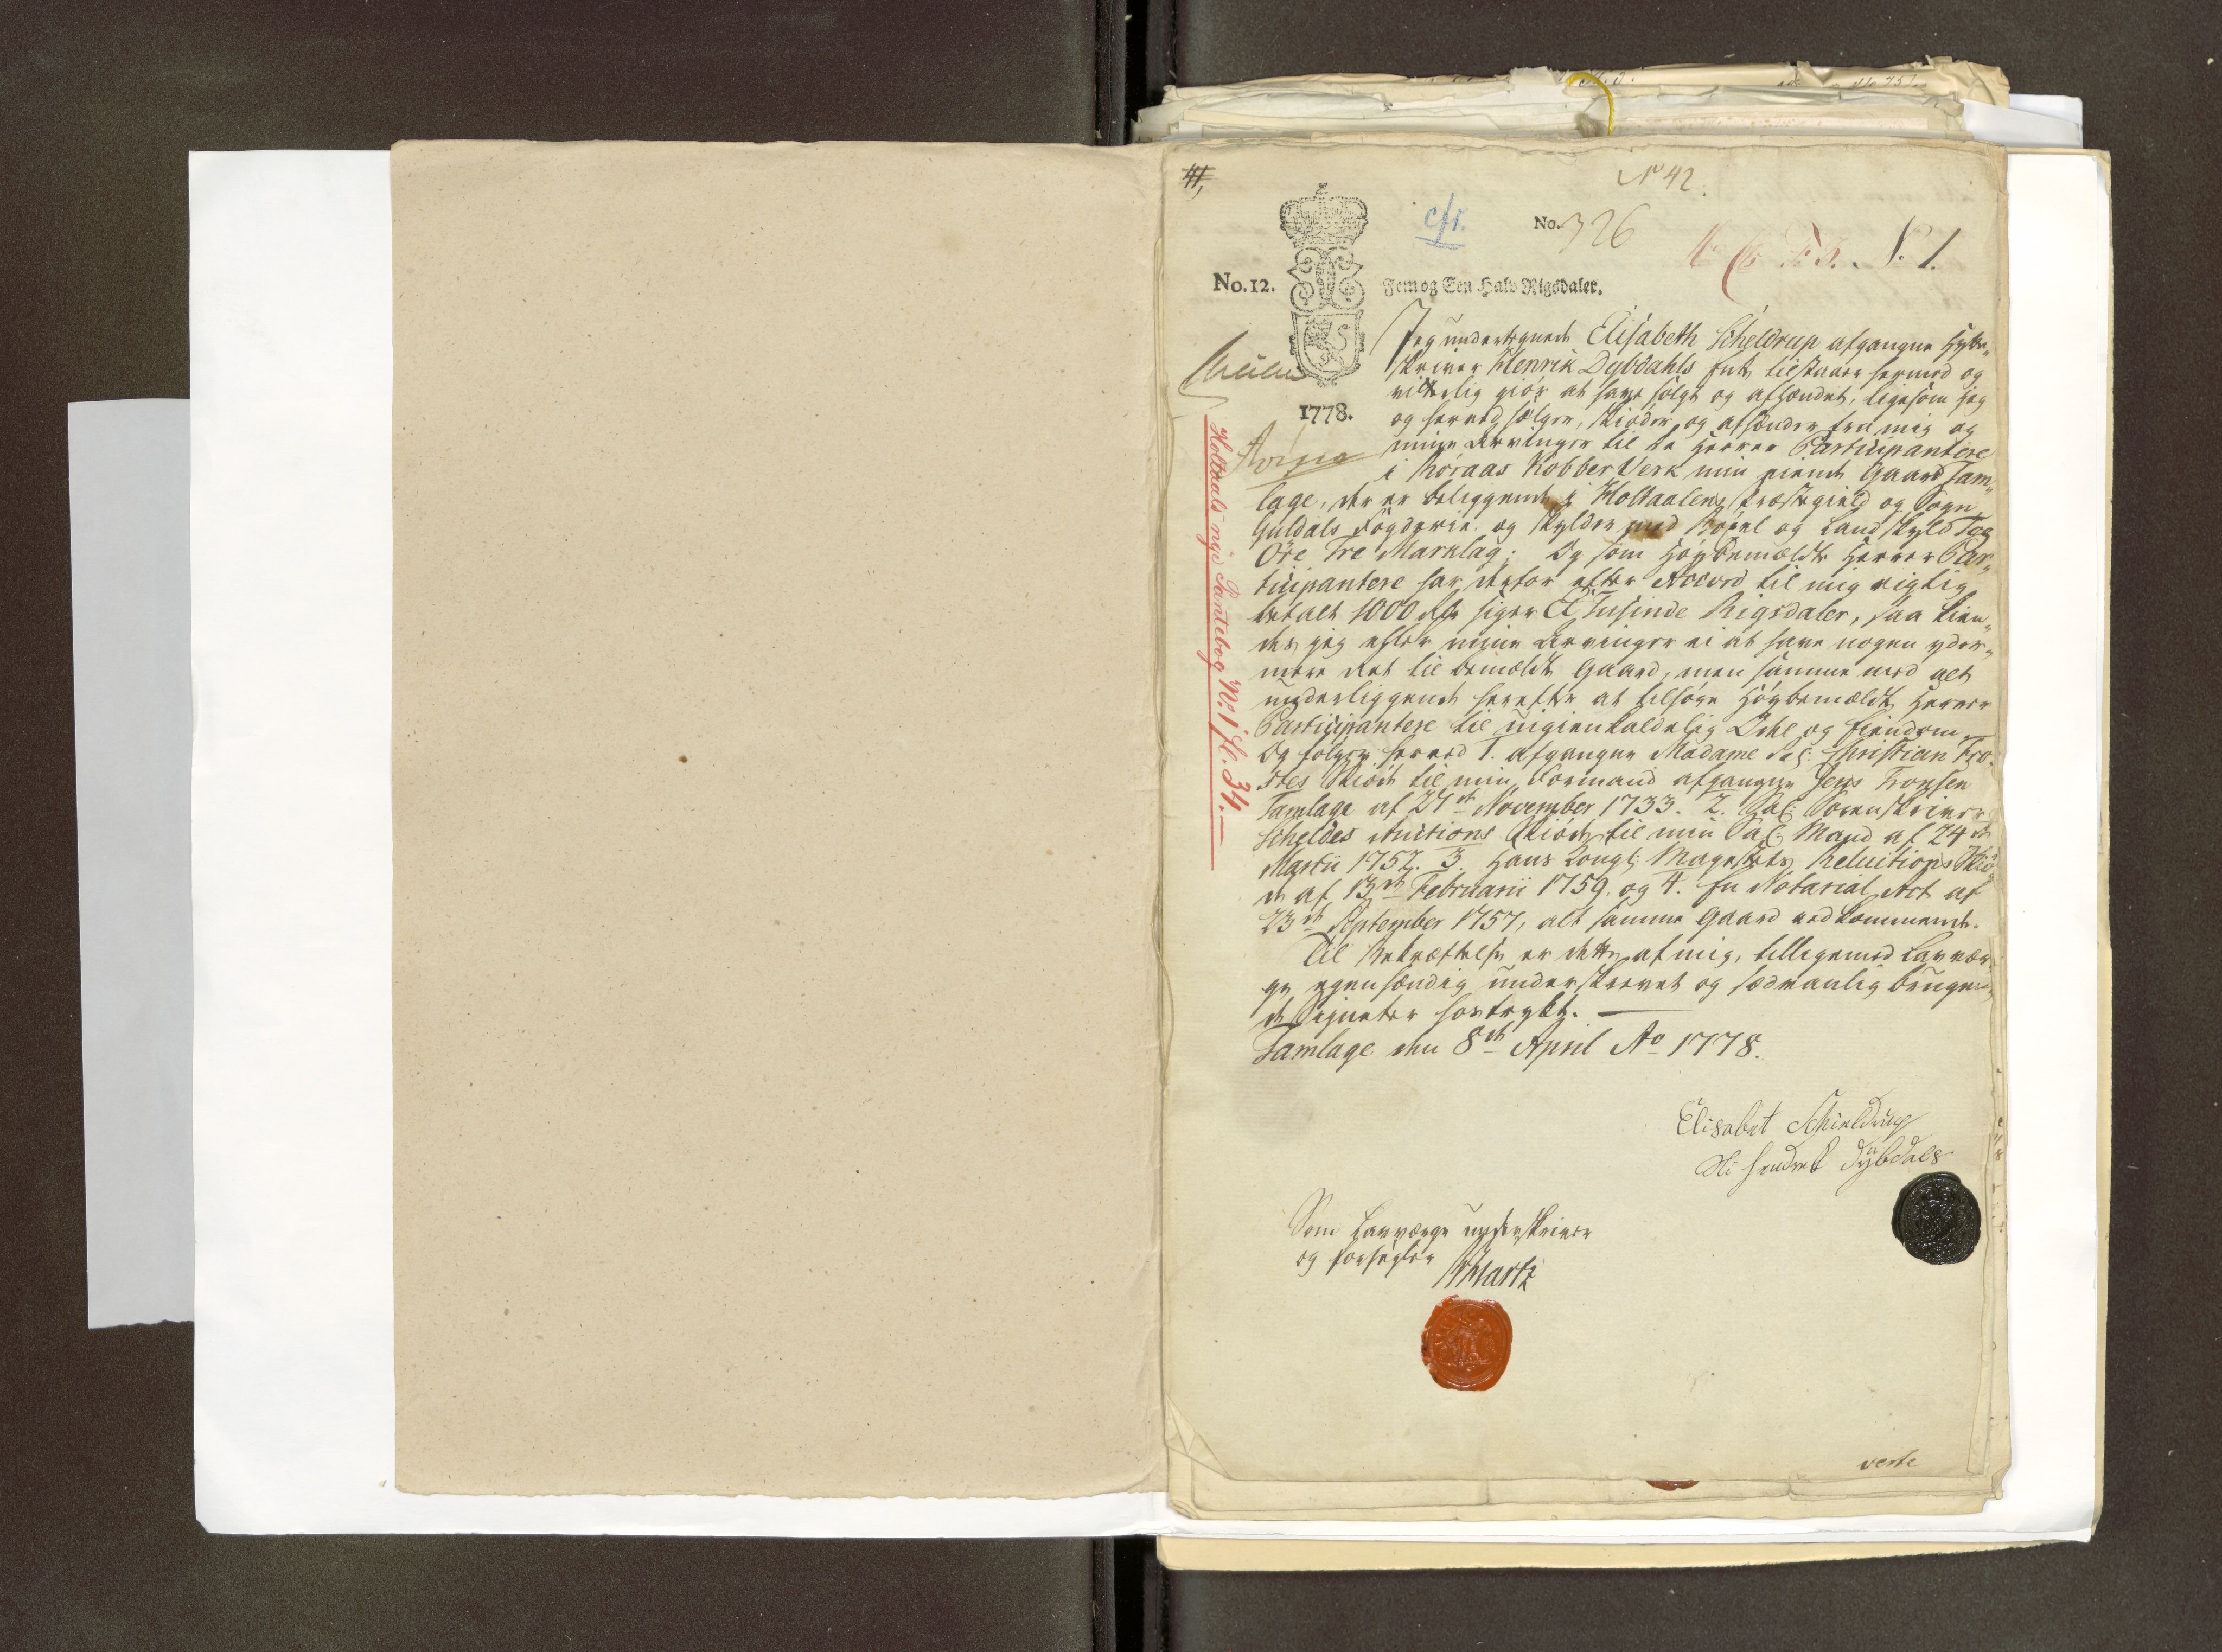 41,
N 42.
cfr.
No. 326
N. 1.
No. 12.
Fem og Een Halv Rigsdaler.
1778.
Holtaals nye Pantebog No. 1 fl. 34.
Jeg undertegnede Elisabeth Scheldrup afgangne Hytte-
skriver Henrik Dybdahls Enke tilstaaer hermed og
vitterlig giør at have solgt og afhændet, ligesom jeg
og herved sælger, skiøder og afhænder fra mig og
mine Arvinger til de Herrer Participantere
i Røraas Kobber Verk min eiende Gaard Tam-
lage, der er beliggende i Holtaalens Præstegield og Sogn,
Guldals Fogderie og skylder med Bøxel og Landskyld Toe
Öre Tre Marklag; Og som Høybemældte Herrer Par-
ticipantere har derfor efter Accord til mig rigtig
betalt 1000 rdr siger Et Tusinde Rigsdaler, saa kien-
des jeg eller mine Arvinger ei at have nogen yder-
mere Ret til bemældte Gaard, men samme med alt
underliggende herefter at tilhøre Høybemældte Herrer
Participantere til uigienkaldelig Odel og Eiendom.
Og følger herved 1. afgangne Madame Sal: Christian Fro-
stes Skiøde til min Formand afgangne Jens Tronsen
Tamlage af 27de November 1733. 2. Sal: Sorenskriver
Scheldes Auctions Skiøde til min Sal: Mand af 24de
Martii 1757. 3 Hans Kongl: Mayestets Reluitions Skiø-
de af 13de Februarii 1759. og 4. En Notarial Act af
23de September 1757, alt samme Gaard vedkommende.
Til Bekræftelse er dette af mig, tilligemed Lavvær-
ge egenhændig underskrevet og sædvanlig brugen-
de Signeter hostrykt.
Tamlage den 8de April Ao 1778.
Elisabet Schieldrup
Sl: Hendrik Dybdals
Som Lavværge underskriver
og forsegler
verte